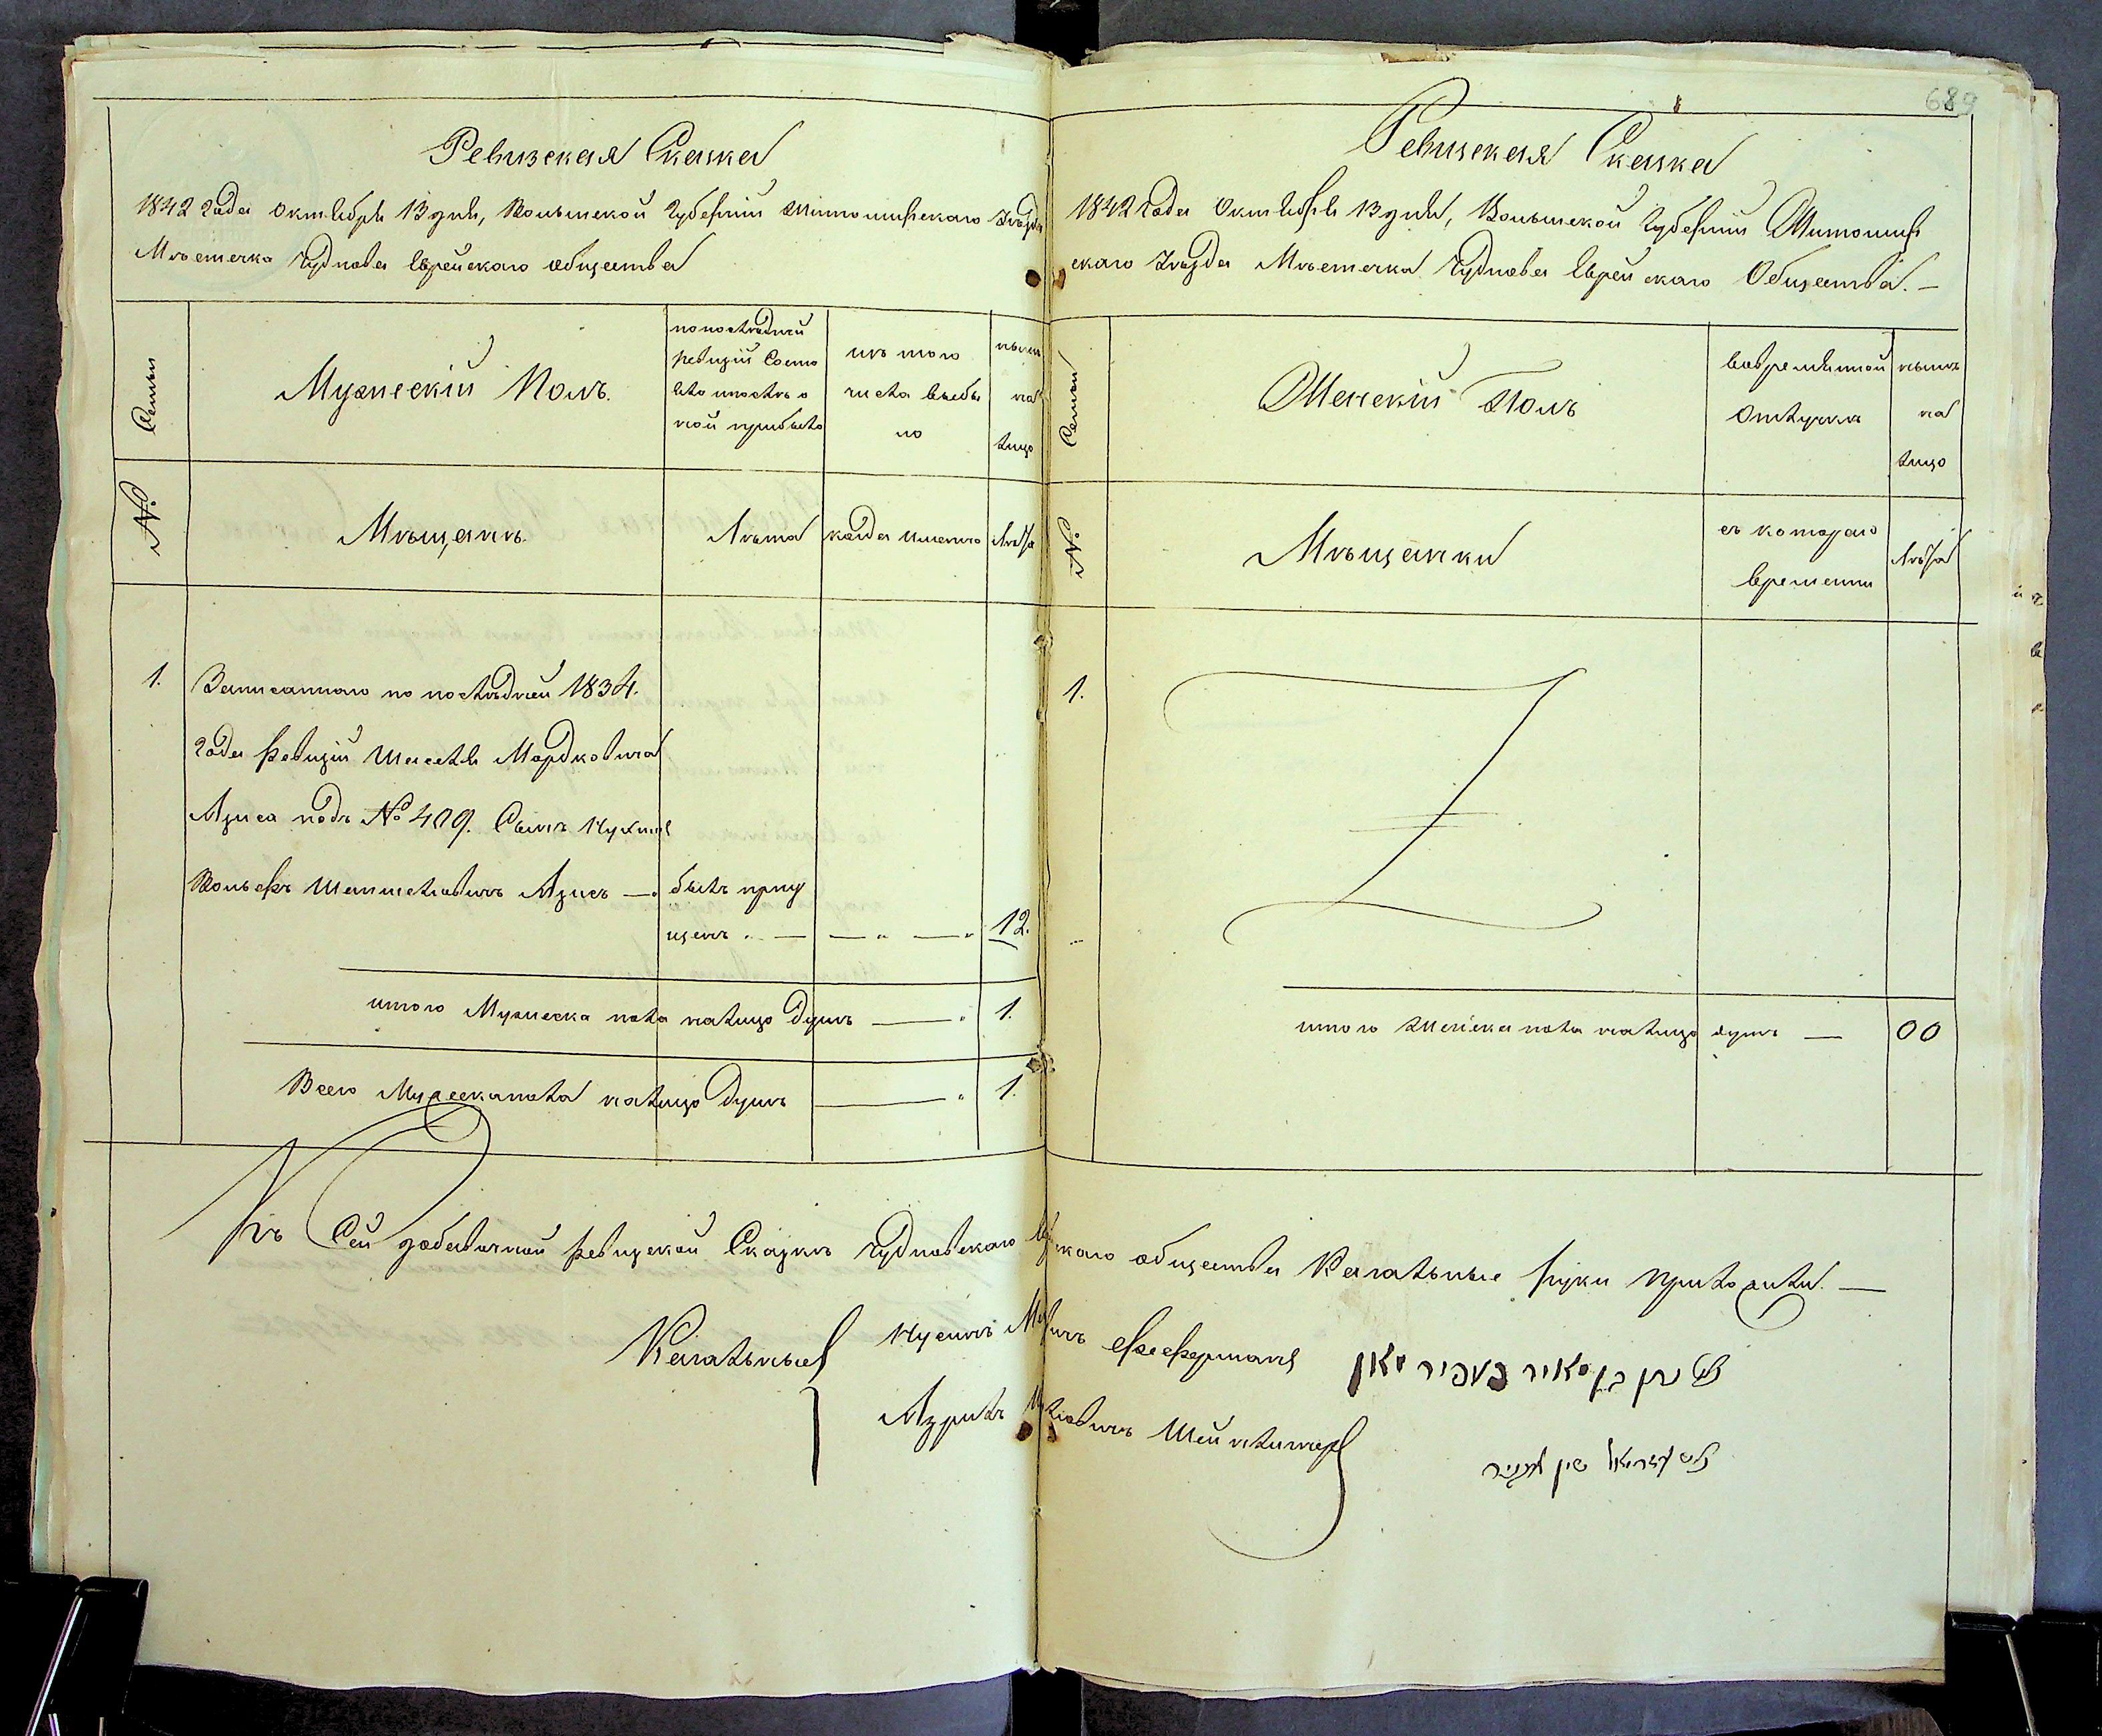 Ревизская Сказка
1842 года Октября 13 дня, Волынской Губернии Житомирскаго Уѣзда
Мѣстечка Чуднова Еврейскаго общества
Семьи
Мужескій Полъ.
по последней
ревизіи Состо
яло и послѣ о
ной прибыло
изъ того
числа выбы
ло
нынѣ
на
лицо
№
Мѣщанъ.
Лѣта
когда именно
Лѣта
1. Записаннаго по послѣдней 1834.
года Ревизіи Шмселя Мордковича
Азиса подъ № 409. Сынъ Нухим
Вольфъ Шапшелiовичъ Азисъ — былъ пропу
щенъ — — — 12.
итого Мужеска пола налицо душъ — 1.
Всего Мужеска пола налицо душъ — 1.
689
Ревизская Сказка
1842 года Октября 13 дня, Волынской Губернии Житомир
скаго Уѣзда Мѣстечка Чуднова Еврейскаго Общества. —
Семьи
Женскій Полъ
во временной
отлучкѣ
нынѣ
на
лицо
№
Мѣщанки
съ котораго
времени
Лѣта
1.
итого женска пола налицо душъ — 00
Къ Сей добавочной ревизской Сказкѣ Чудновскаго Еврейскаго общества Кагальные руки приложили. —
Кагальные Нусинъ Меиръ Фефферманъ נטע בן מאיר פעפירמאן
Азрилъ Ицковичъ Шейнлихтер